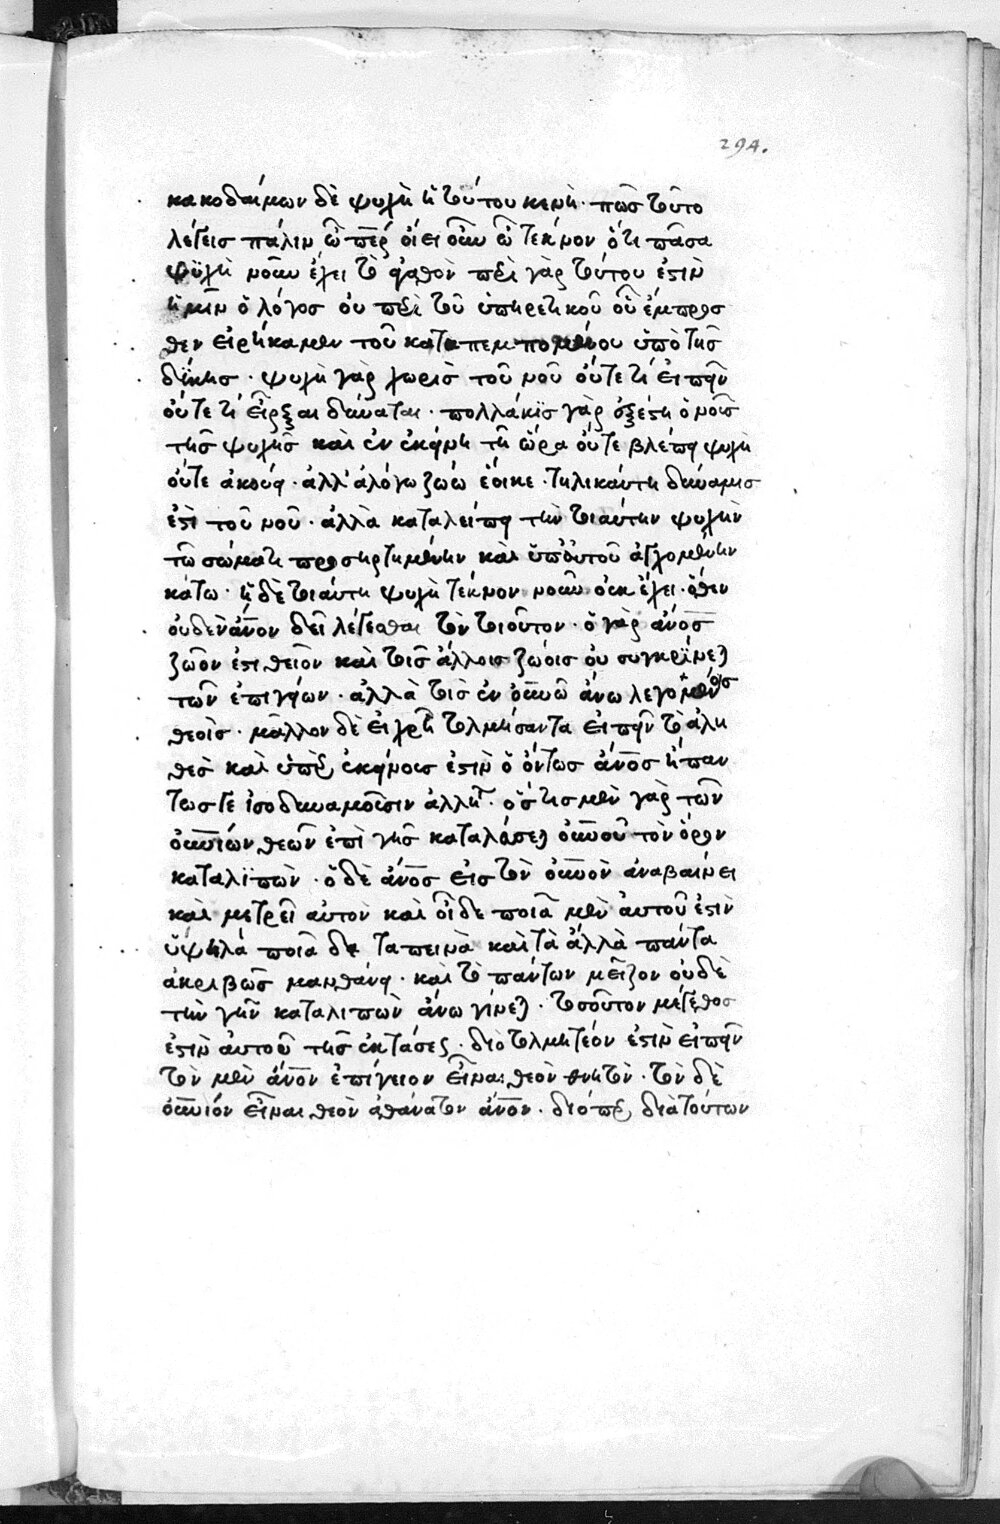 294.
κακοδαίμων δὲ ψυχὴ ἡ τούτου κενή· πῶς τοῦτο
λέγεις πάλιν ὦ περ οἴει οὖν ὦ τέκνον ὅτι πᾶσα
ψυχὴ νοῦν ἔχει τὸ ἀγαθὸν περὶ γὰρ τούτου ἐστὶν
ἡμῖν ὁ λόγος οὐ περὶ τοῦ ὑπηρετικοῦ οὗ ἔμπροσ
θεν εἰρήκαμεν τοῦ καταπεμπομένου ὑπὸ τῆς
δίκης· ψυχὴ γὰρ χωρὶς τοῦ νοῦ οὔτε τὶ εἰπεῖν
οὔτε τὶ εἶρξαι δύναται· πολλάκις γὰρ ἐξέστη ὁ νοῦς
τῆς ψυχῆς καὶ ἐν ἐκείνη τῆ ὥρα οὔτε βλέπει ψυχὴ
οὔτε ἀκούει· ἀλλ' ἀλόγω ζώω ἔοικε· τηλικαύτη δύναμις
ἐστὶ τοῦ νοῦ· ἀλλὰ καταλείπει τὴν τοιαύτην ψυχὴν
τῶ σώματι προσηρτημένην καὶ ὑπ' αὐτοῦ ἀγχομένην
κάτω· ἡ δὲ τοιαύτη ψυχὴ τέκνον νοῦν οὐκ ἔχει· ὅθεν
οὐδὲν ἄνον δεῖ λέγεσθαι τὸν τοιοῦτον· ὁ γὰρ ἄνος
ζῶον ἐστι θεῖον καὶ τοῖς ἄλλοις ζώοις οὐ συγκρίνεται
τῶν ἐπιγείων· ἀλλὰ τοῖς ἐν οὐνῶ ἄνω λεγομένοις
θεοῖς· μᾶλλον δὲ εἰ χρὴ τολμήσαντα εἰπεῖν τὸ ἀλη
θὲς καὶ ὑπὲρ ἐκείνοις ἐστὶν ὁ ὄντως ἄνος ἢ πάν
τως γε ἰσοδυναμοῦσιν ἀλλήλ· ὅστις μὲν γὰρ τῶν
οὐνίων θεῶν ἐπὶ γῆς καταλάσεται οὐνοῦ τὸν ὅρον
καταλιπών· ὁ δὲ ἄνος εἰς τὸν οὐνὸν ἀναβαίνει
καὶ μετρεῖ αὐτὸν καὶ οἶδε ποῖα μὲν αὐτοῦ ἐστὶν
ὑψηλά ποῖα δε ταπεινὰ καὶ τὰ ἀλλὰ πάντα
ἀκριβῶς μανθάνει· καὶ τὸ πάντων μεῖζον οὐδὲ
τὴν γῆν καταλιπὼν ἄνω γίνεται· τοσοῦτον μέγεθος
ἐστὶν αὐτοῦ τῆς ἐκτάσεως· διὸ τολμητέον ἐστὶν εἰπεῖν
τὸν μὲν ἄνον ἐπίγειον εἶναι θεὸν θνητόν· τὸν δὲ
οὐνιόν εἶναι θεὸν ἀθάνατον ἄνον· διόπερ διὰ τούτων